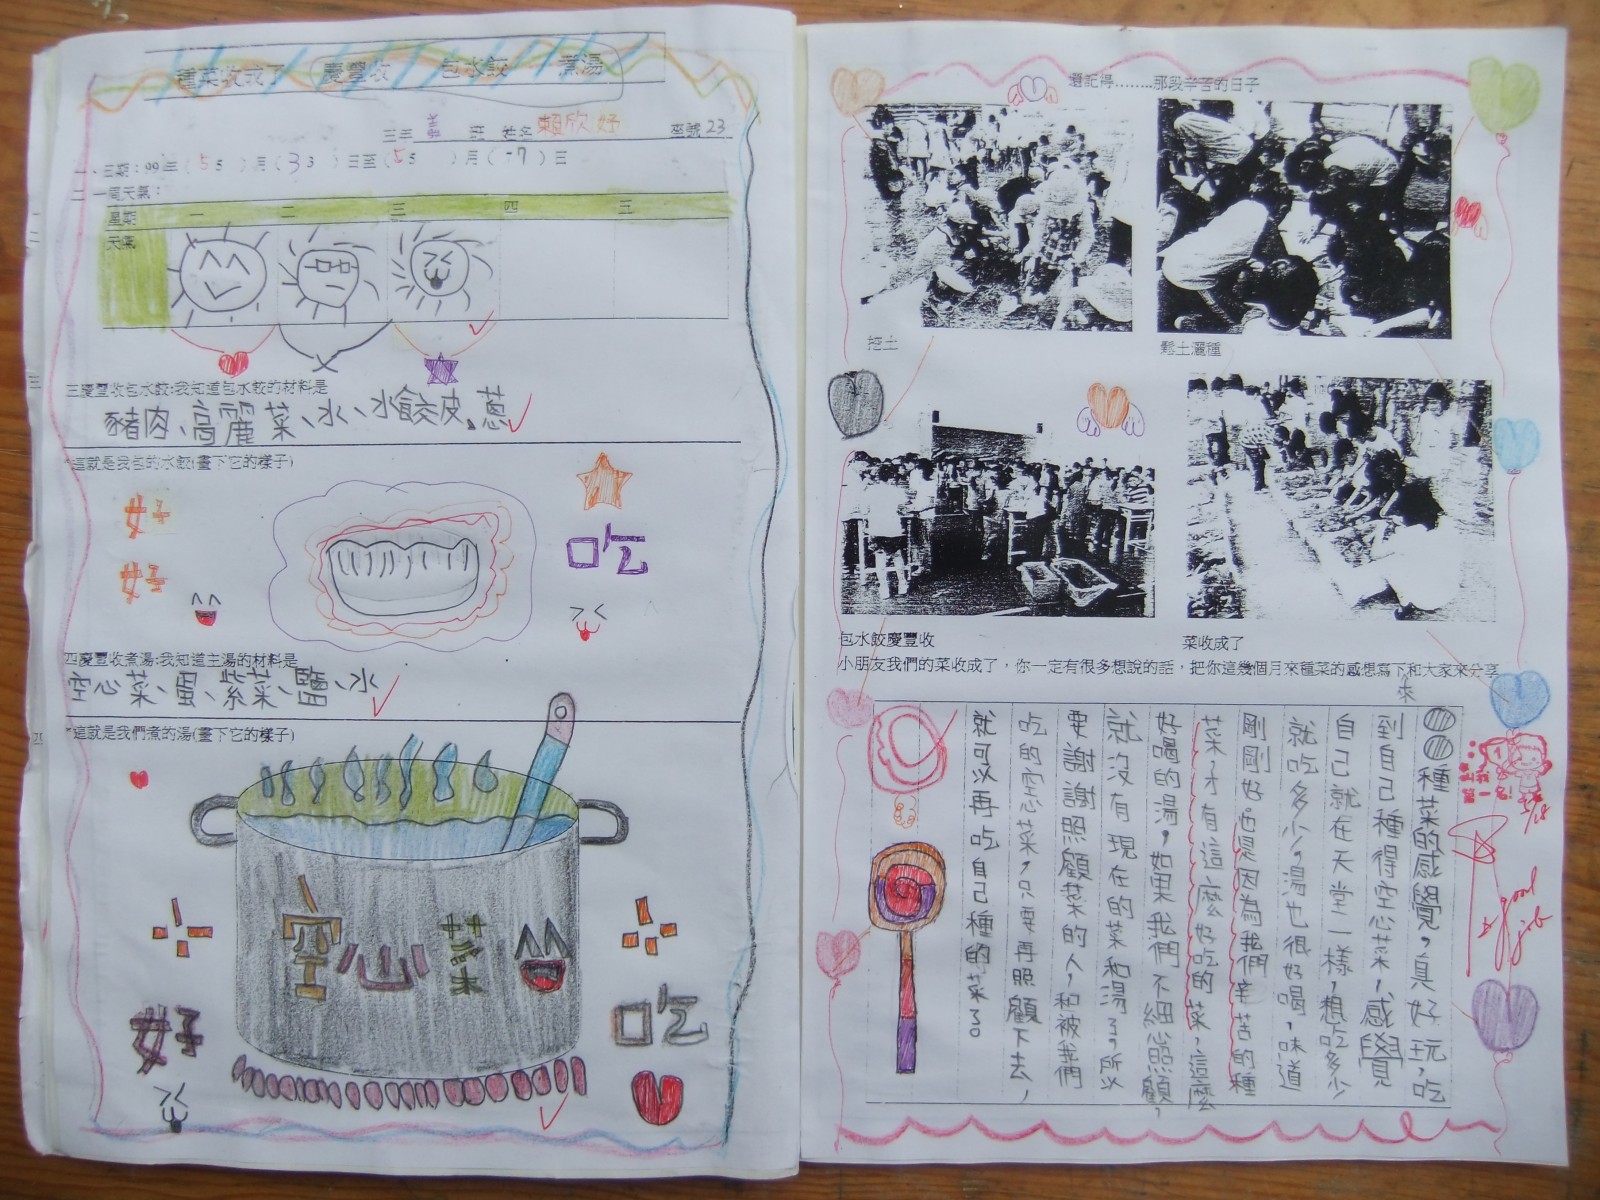 種菜收成了 慶豐收 包水餃 煮湯
三年 義 班 姓名 賴欣妤 座號 23
一、日期：99年( 5 )月( 3 )日至( 5 )月( 7 )日
二 一周天氣：
星期 一 二 三 四 五
天氣
三慶豐收包水餃:我知道包水餃的材料是
豬肉、高麗菜、水、水餃皮、蔥
*這就是我包的水餃(畫下它的樣子)
好
好
吃
四慶豐收煮湯:我知道主湯的材料是
空心菜、蛋、紫菜、鹽、水
*這就是我們煮的湯(畫下它的樣子)
空心菜
好
吃
還記得........那段辛苦的日子
挖土
鬆土灑種
包水餃慶豐收
菜收成了
小朋友我們的菜收成了，你一定有很多想說的話，把你這幾個月來種菜的感想寫下和大家來分享
種菜的感覺，真好玩，吃
到自己種得空心菜，感覺
自己就在天堂一樣，想吃多少
就吃多少。湯也很好喝，味道
剛剛好。是因為我們辛苦的種
菜，才有這麼好吃的菜，這麼
好喝的湯，如果我們不細心照顧，
就沒有現在的菜和湯了。所以
要謝謝照顧菜的人，和被我們
吃的空心菜，只要再照顧下去，
就可以再吃自己種的菜了。
good
job